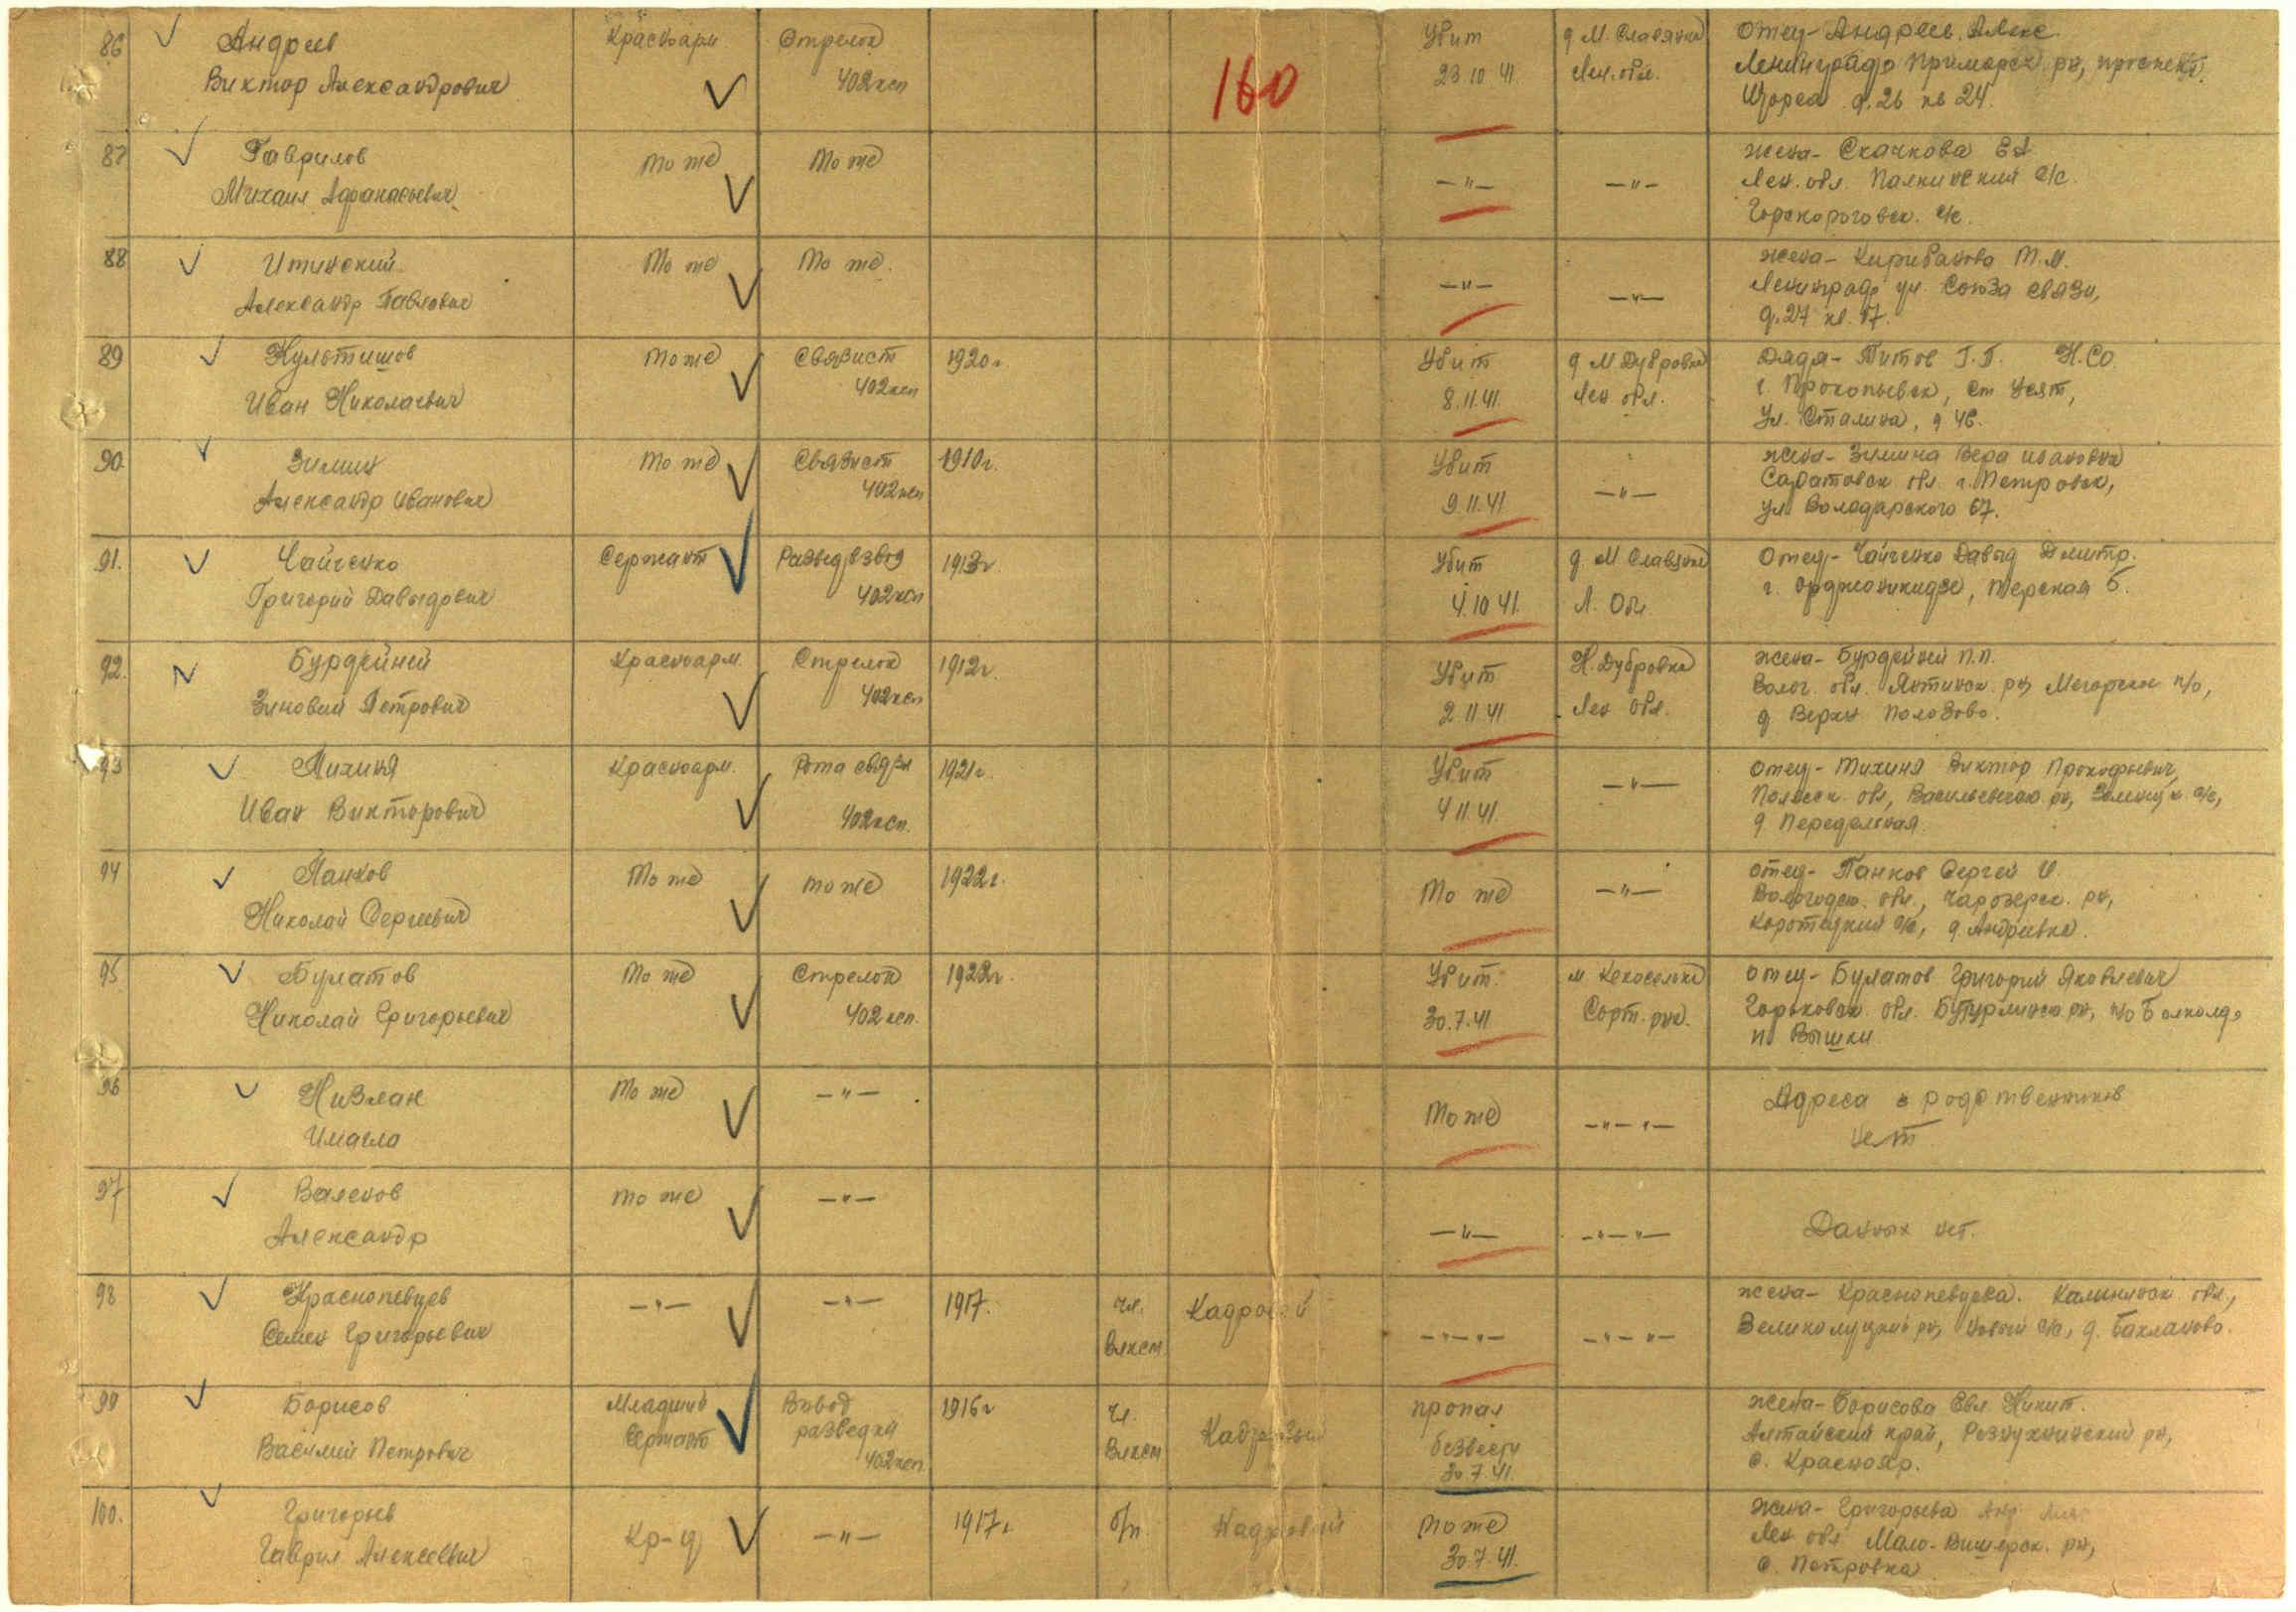 86 Андреев Красноарм. Стрелок Убит д М. Славянка Отец - Андреев Алекс.
Виктор Александрович 402 ксп 23.10.41. Лен. обл. Ленинград Приморск рн, проспект
160
Щорса д. 26 кв 24.
87 Гаврилов То же То же —"— —"— жена - Скачкова ЕА
Михаил Афанасьевич Лен. обл. Палкинский с/с
с/с.
88 То же То же. —"— —"— жена - Т.М.
Александр Павлович Ленинград ул Союза связи,
д. 27 кв. 17.
89 Культишов То же Связист 1920г. Убит д М Дубровка Дядя - Титов Г.Г. Н.СО.
Иван Николаевич 402ксп 8.11.41. Лен обл. г. Прокопьевск, ст Усят,
ул. Сталина, д 46.
90. Зимин То же Связист 1910г. Убит —"— жена - Зимина Вера Ивановна
Александр Иванович 402ксп 9.11.41 Саратовск обл г. Петровск,
ул Володарского 67.
91. Чайченко Сержант Развед взвод 1913г Убит д. М Славянка Отец - Чайченко Давыд Дмитр.
Григорий Давыдович 402ксп 4.10 41. Л. Обл г. Орджоникидзе, Терская 6.
92. Бурдейней Красноарм. Стрелок 1912г. Убит Н. Дубровка жена - Бурдейней П.П.
Зиновий Петрович 402ксп 2.11 41 Лен обл. Волог. обл. рн, Мегорск п/о,
д Верхн Полозово.
93 Михиня Красноарм. Рота связи 1921г. Убит —"— отец - Михиня Виктор Прокофьевич,
Иван Викторович 402ксп. 4 11.41. Полесск обл, рн, с/с,
д
94 Панков То же то же 1922г. То же —"— отец - Панков Сергей И.
Николай Сергеевич Вологодск. обл., Чарозерск. рн,
с/с, д. Андреевка.
95 Булатов То же Стрелок 1922г. Убит. м Кексгольм отец - Булатов Григорий Яковлевич
Николай Григорьевич 402 ксп. 30.7.41 Сорт. рук. Горьковск обл. Бутурлинск рн, п/о
Вышки
96 Низлан То же —"— То же —"— "— Адреса родственников
нет
97 Валенов То же —"— —"— —"—"— Данных нет.
Александр
98 Краснопевцев —"— —"— 1917. чл. Кадровый —"—"— —"— "— жена - Краснопевцева. Калининск обл.,
Семен Григорьевич влксм Великолуцкий рн, с/с, д. Бахланово.
99 Борисов Младший Взвод 1916г чл. Кадровый пропал жена - Борисова Евл Никит.
Василий Петрович сержант разведки влксм безвести Алтайский край, рн,
402ксп 30.7.41. с. Краснояр.
100. Григорьев Кр-ц —"— 1917г б/п. Кадровый то же жена - Григорьева
Гаврил Алексеевич 30.7.41. Лен обл Мало-Вишерск. рн,
с. Петровка